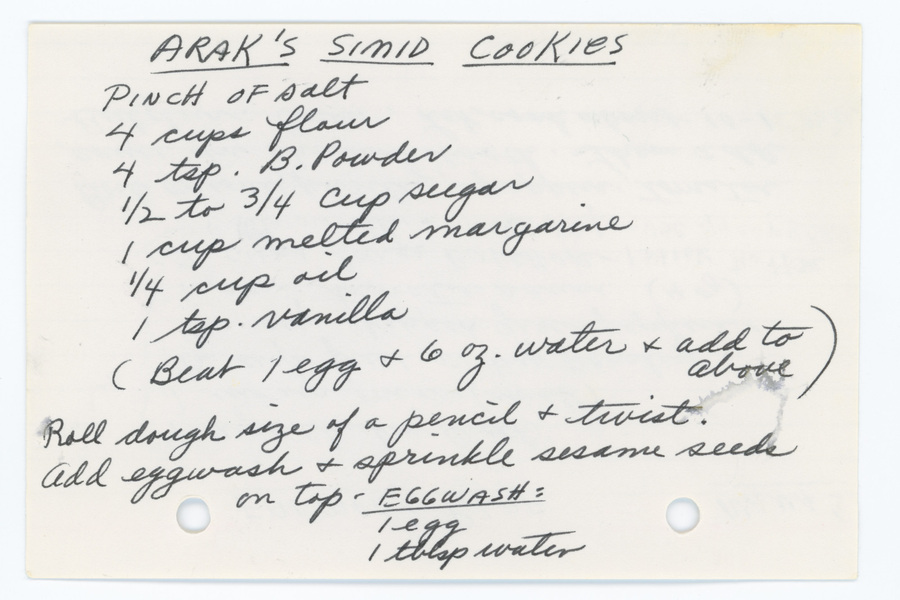 ARAK'S SIMID COOKIES
PINCH OF salt
4 cups flour
4 tsp. B. Powder
1/2 to 3/4 cup sugar
1 cup melted margarine
1/4 cup oil
1 tsp. vanilla
( Beat 1 egg & 6 oz. water & add to
above )
Roll dough size of a pencil & twist.
Add eggwash & sprinkle sesame seeds
on top - EGGWASH:
1 egg
1 tblsp water